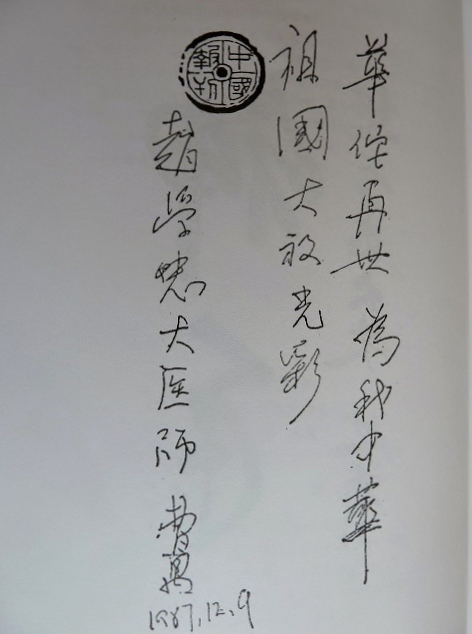 華佗再世 為我中華
祖國大放光彩
中國報刊
趙學大医師 曹禺
1987.12.9